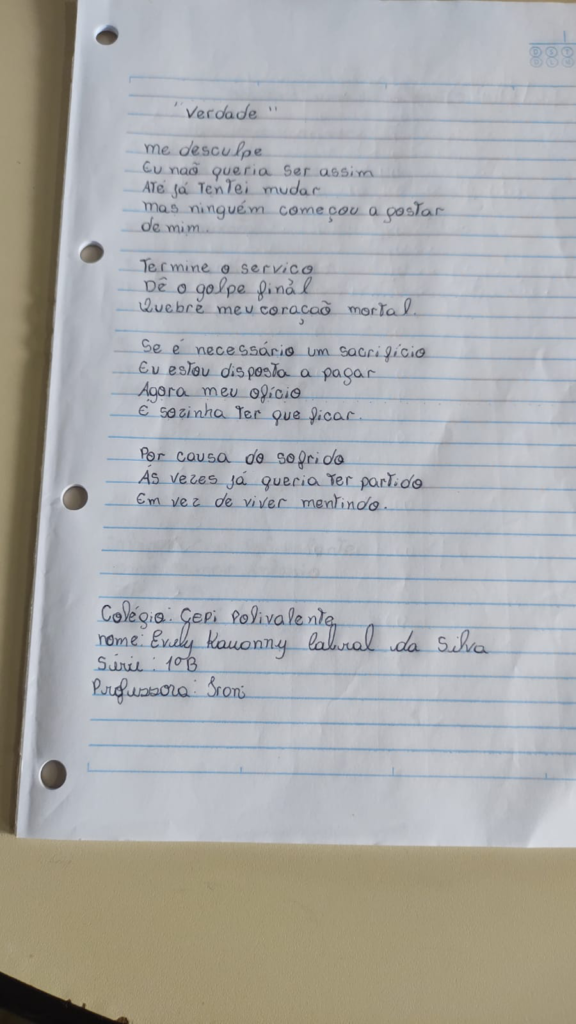 "Verdade"
me desculpe
Eu naõ queria ser assim
Até já tentei mudar
mas ninguém começou a gostar
de mim.
Termine o serviço
Dê o golpe finàl
Quebre meu coraçaõ mortal.
Se é necessário um sacrifício
Eu estou disposta a pagar
Agora meu ofício
É sozinha ter que ficar.
Por causa do sofrido
Ás vezes já queria ter partido
Em vez de viver mentindo.
Colégio: Cepi Polivalente
nome: Evely Kauanny Cabral da Silva
Série: 1ºB
Professora: Iron